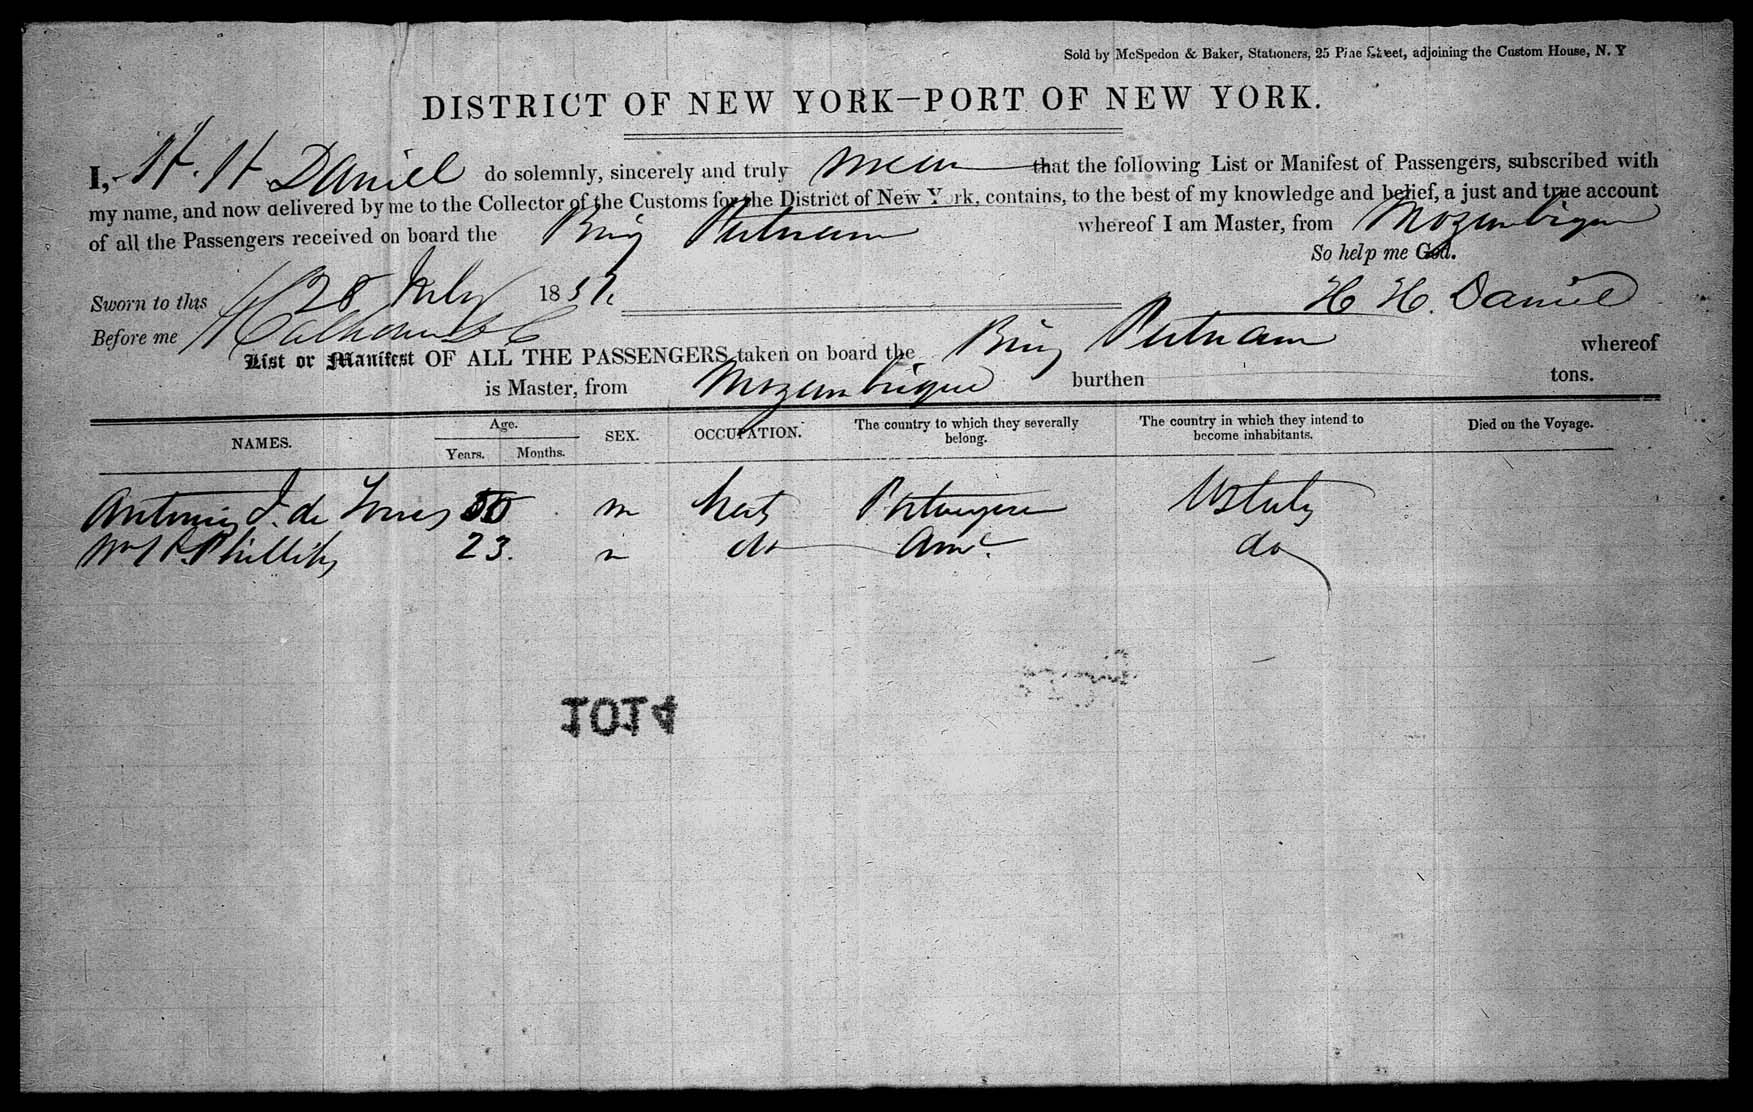 Sold by McSpedon & Baker, Stationers, 25 Pine Street, adjoining the Custom House, N. Y
DISTRICT OF NEW YORK—PORT OF NEW YORK.
I, H. H. Daniel do solemnly, sincerely and truly that the following List or Manifest of Passengers, subscribed with
my name, and now delivered by me to the Collector of the Customs for the District of New York, contains, to the best of my knowledge and belief, a just and true account
of all the Passengers received on board the Brig Putnam whereof I am Master, from Mozambique
So help me God.
Sworn to this 28 July 185 H. H. Daniel
Before me
List or Manifest OF ALL THE PASSENGERS taken on board the Brig Putnam whereof
is Master, from Mozambique burthen tons.
NAMES. Age. Years. Months. SEX. OCCUPATION. The country to which they severally belong. The country in which they intend to become inhabitants. Died on the Voyage.
Antonio J. de 50 m Portuguese U States
Wm Phillips 23. m do Amc. do
1014